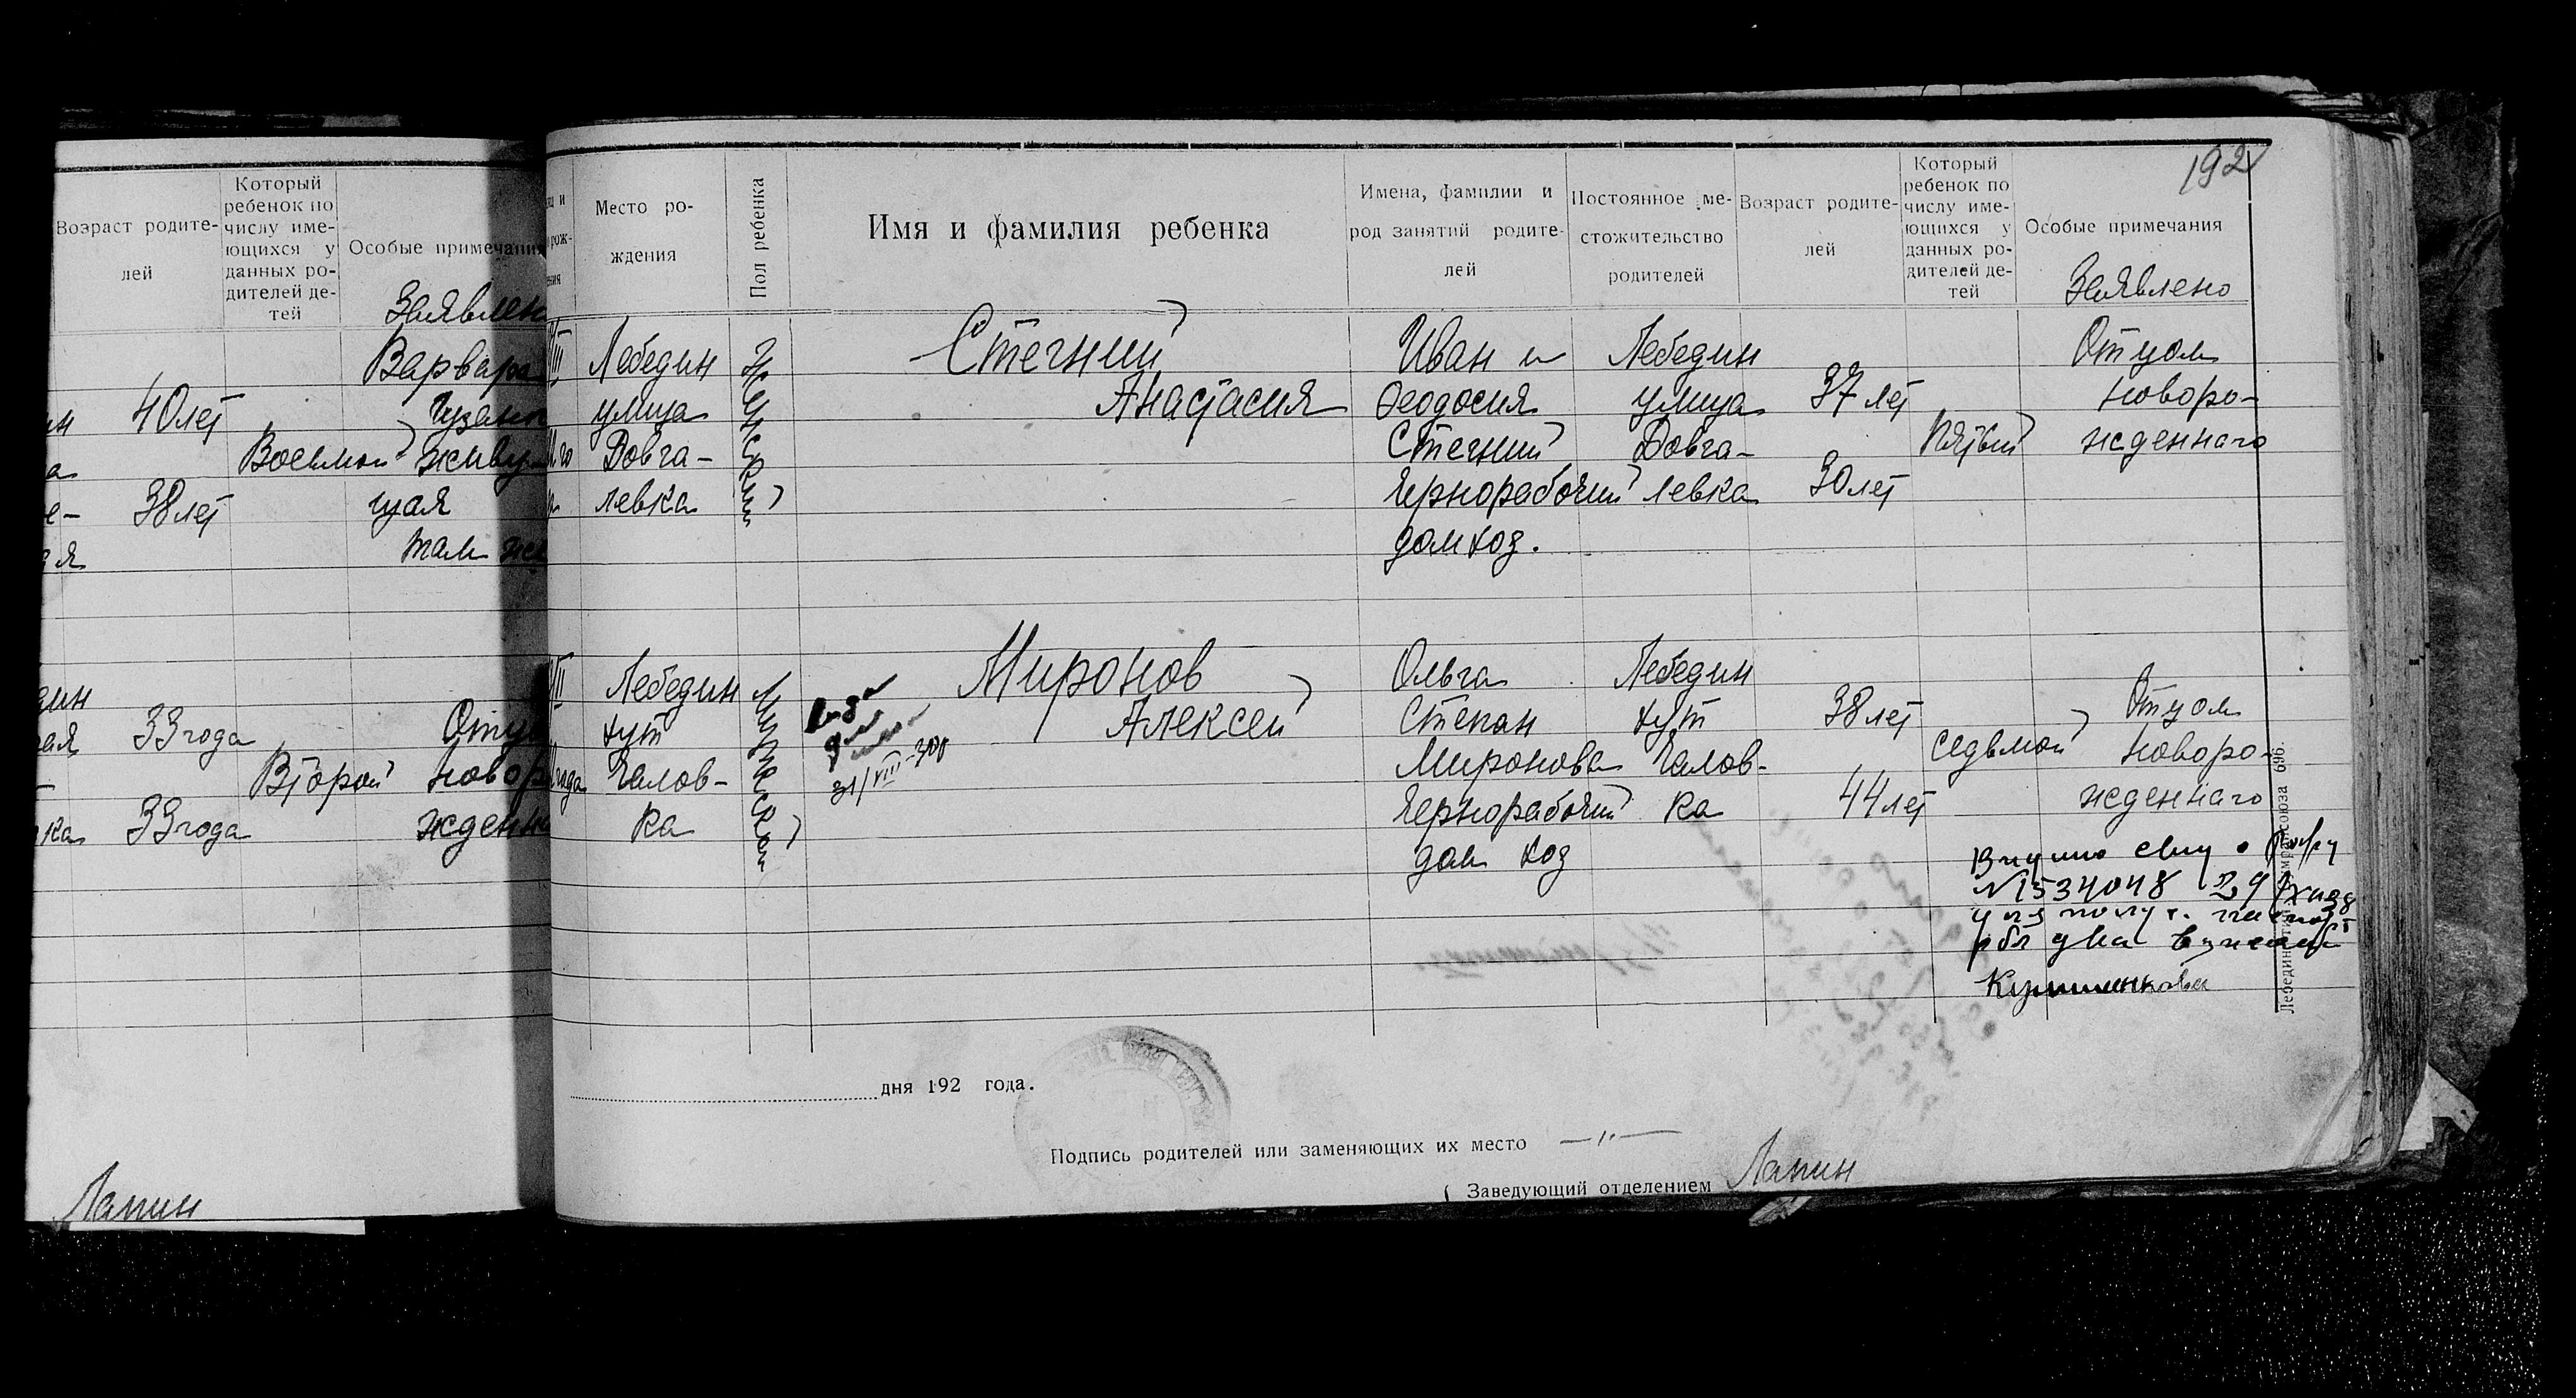 Возраст родите-
лей
Который
ребенок по
числу име-
ющихся у
данных ро-
дителей де-
тей
Особые примечания
Заявлен
40 лет
38 лет
Восьмой
Варвара
живу-
щая
там же
33 года
33 года
Второй
новор
жденна
Лапин
192
Место ро-
ждения
Пол ребенка
Имя и фамилия ребенка
Имена, фамилии и
род занятий родите-
лей
Постоянное ме-
стожительство
родителей
Возраст родите-
лей
Который
ребенок по
числу име-
ющихся у
данных ро-
дителей де-
тей
Особые примечания
Заявлено
Лебедин
улица
Довга-
левка
Женский
Стегний
Анастасия
Иван и
Феодосия
Стегний
Чернорабочий
дом хоз.
Лебедин
улица
Довга-
левка
37 лет
30 лет
Пятый
Отцом
новоро-
жденнаго
Лебедин
хут
Чалов-
ка
Мужской
31/VIII-
Миронов
Алексей
Ольга
Степан
Миронова
Чернорабочий
дом хоз
Лебедин
хут
Чалов-
ка
38 лет
44 лет
седьмой
Отцом
новоро-
жденнаго
№ 1534048
дня 192 года.
Подпись родителей или заменяющих их место —"—
Заведующий отделением Лапин